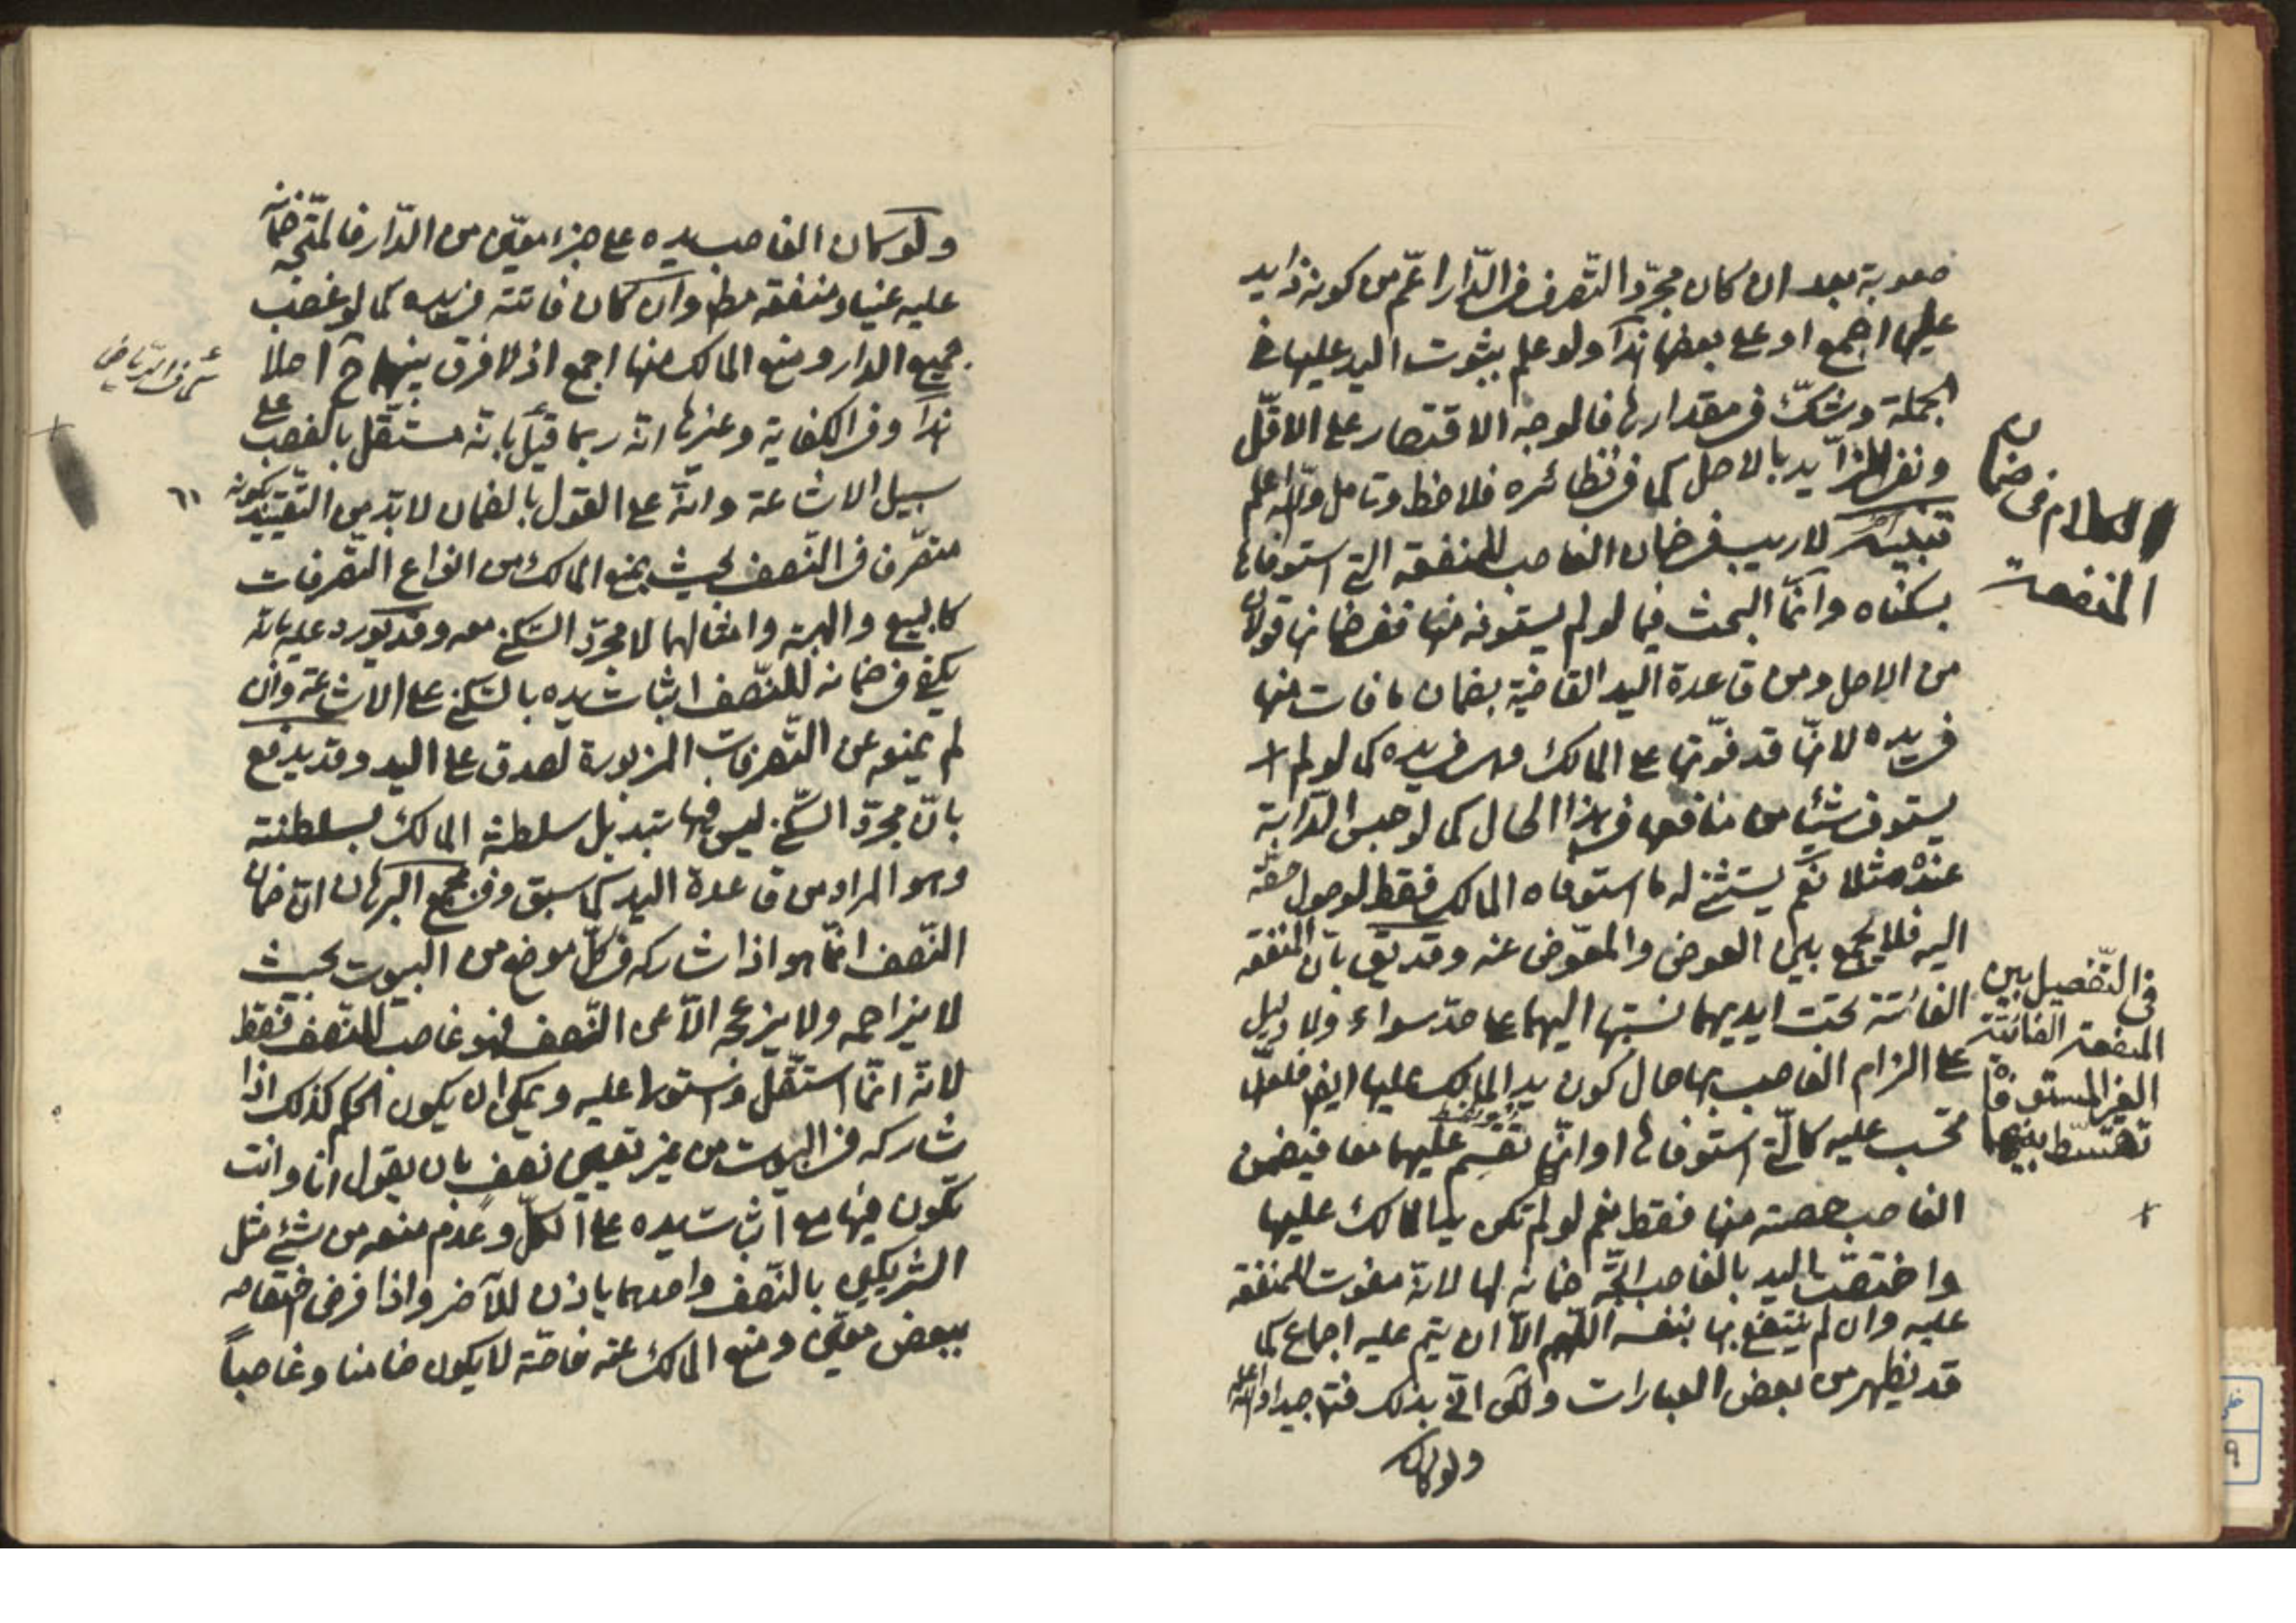 صعوبة بعد ان كان مجرّد التّصرف فى الدّار اعمّ من كونه ذا يد
عليها اجمع او على بعضها هذا ولو علم بثبوت اليد عليها فى
الجملة وشكّ فى مقدارها فالوجه الاقتصار على الاقلّ
ونفى الزّايد بالاصل كما فى نظائره فلاحظ وتامل والله اعلم
تنبيه لا ريب فى ضمان الغاصب للمنفعة التى استوفاها
بسكناه وانّما البحث فيما لو لم يستوفه منها ففى ضمانها قولان
من الاصل ومن قاعدة اليد القاضية بضمان ما فات منها
فى يده لانّه قد فوّتها على المالك وهى فى يده كما لو لم
يستوف شيئا من منافعها فى هذا الحال كما لو حبس الدّابة
عنده مثلا نعم يستثنى له ما استوفاه المالك فقط لوصول حقّه
اليه فلا يجمع بين العوض والمعوّض عنه وقد يقال بانّ المنفعة
الفائتة تحت ايديهما نسبتها اليهما على حدّ سواء ولا دليل
على الزام الغاصب بها حال كون يد المالك عليها ايضا فلعلّها
تحسب عليه كالّتى استوفاها او انّها تقسم عليهما معا فيضمن
الغاصب حصته منها فقط نعم لو لم تكن يد المالك عليها
واختصّت اليد بالغاصب اتّجه ضمانه لها لانّه مفوت للمنفعة
عليه وان لم ينتفع بها بنفسه اللّهم الّا ان يتم عليه اجماع كما
قد يظهر من بعض العبارات ولكن انّى بذلك فتدبر جيدا والله اعلم
ولو كان
الكلام فى ضمان
المنفعة
فى التّفصيل بين
المنفعة الفائتة
الغير المستوفاة
تقسّط بينهما
ولو كان الغاصب يده على جزء معيّن من الدّار فالمتّجه ضمانه
عليه عينا ومنفعة مط وان كان فائتة فى يده كما لو غصب
جميع الدار ومنع المالك منها اجمع اذ لا فرق بينهما ح اصلا
هذا وفى الكفاية وغيرها انّه ربما قيل بانّه مستقل بالغصب على
سبيل الاشاعة وانّه على القول بالضمان لا بدّ من التّقييد بكونه
متصّرفا فى النّصف بحيث يمنع المالك من انواع التّصرفات
كالبيع والهبة وامثالهما لا مجرّد السّكنى معه وقد يورد عليه بانّه
يكفى فى ضمانه للنّصف اثبات يده بالسّكنى على الاشاعة وان
لم يمنعه عن التّصرفات المزبورة لصدق على اليد وقد يدفع
بانّ مجرّد السّكنى ليس فيها تبديل سلطنة المالك بسلطنته
وهو المراد من قاعدة اليد كما سبق وفى مجمع البرهان انّ ضمان
النّصف انّما هو اذا شاركه فى كلّ موضع من البيوت بحيث
لا يزاحمه ولا يزعجه الّا عن النّصف فهو غاصب للنّصف فقط
لانّه انّما استقلّ واستولى عليه ويمكن ان يكون الحكم كذلك اذا
شاركه فى البيت من غير تعيين نصف بان يقول انا وانت
نكون فيها مع اثبات يده على الكلّ وعدم منعه من شئ مثل
الشريكين بالنّصف واحدهما ياذن للآخر واذا فرض اختصاصه
ببعض معيّن ومنع المالك عنه خاصّة لا يكون ضامنا وغاصباً
٦١